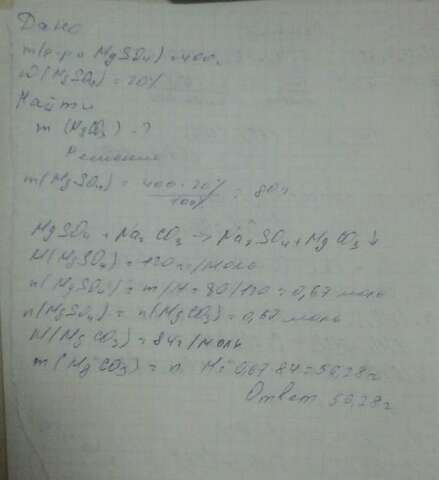 Дано
m(р-ра MgSO4) = 400г
ω(MgSO4) = 20%
Найти
m (MgCO3) - ?
Решение
m(MgSO4) = 400 · 20% / 100% = 80г
MgSO4 + Na2CO3 → Na2SO4 + MgCO3 ↓
M(MgSO4) = 120 г/моль
n(MgSO4) = m/M = 80/120 = 0,67 моль
n(MgSO4) = n(MgCO3) = 0,67 моль
M(MgCO3) = 84г/моль
m(MgCO3) = n · M = 0,67·84 = 56,28г
Ответ 56,28г